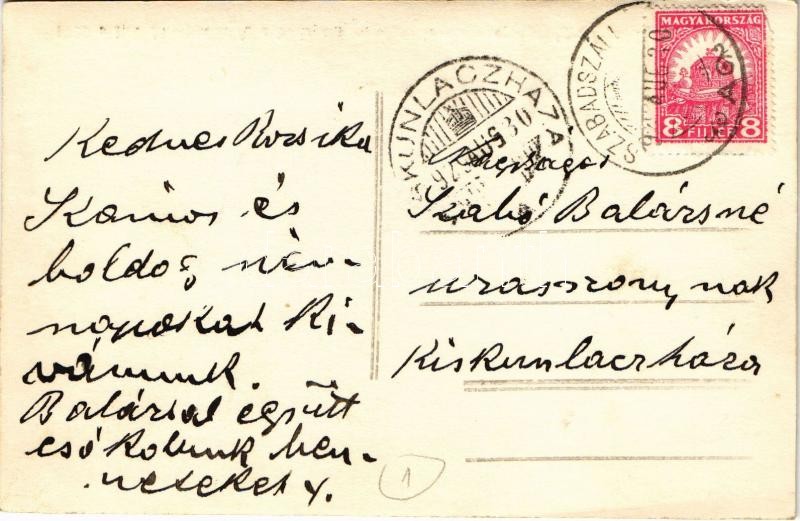 Kedves Rozsika
Számos és
boldog név-
napokat ki-
vánunk.
Balázzsal együtt
csókolunk ben-
neteket
Nagyságos
Szabó Balázsné
uraszszony nak
Kiskunlaczháza
KISKUNLACZHÁZA
SZABADSZÁLL
MAGYARORSZÁG
8 FILLÉR 8
1